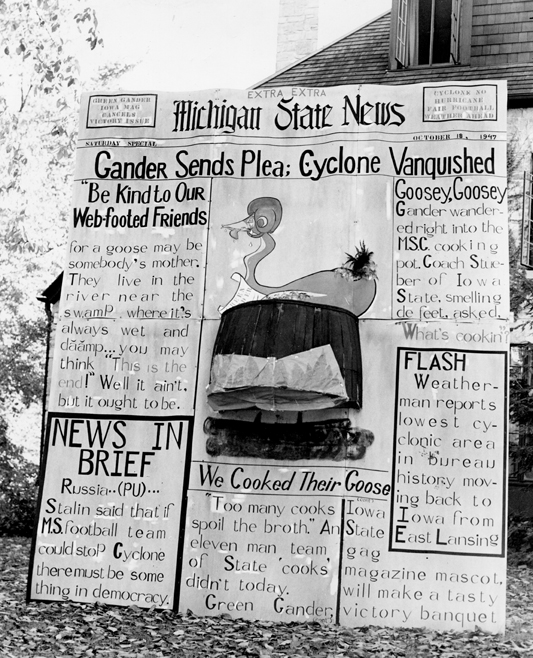 EXTRA EXTRA
GREEN GANDER
IOWA MAG
CANCELS
VICTORY ISSUE
Michigan State News
CYCLONE NO
HURRICANE
FAIR FOOTBALL
WEATHER AHEAD
SATURDAY SPECIAL
OCTOBER 18, 1947
Gander Sends Plea; Cyclone Vanquished
"Be Kind to Our
Web-footed Friends
for a goose may be
somebody's mother.
They live in the
river near the
swamp where it's
always wet and
daamp...you may
think "This is the
end!" Well it ain't,
but it ought to be.
NEWS IN
BRIEF
Russia..(PU)...
Stalin said that if
M.S. football team
could stop Cyclone
there must be some
thing in democracy.
We Cooked Their Goose
"Too many cooks
spoil the broth." An
eleven man team
of State 'cooks'
didn't today.
Green Gander,
Iowa
State
gag
magazine mascot,
will make a tasty
victory banquet
Goosey, Goosey
Gander wander-
ed right into the
M.S.C. cooking
pot. Coach Stue-
ber of Iowa
State, smelling
defeet, asked.
"What's cookin"
FLASH
Weather-
man reports
lowest cy-
clonic area
in bureau
history mov-
ing back to
Iowa from
East Lansing